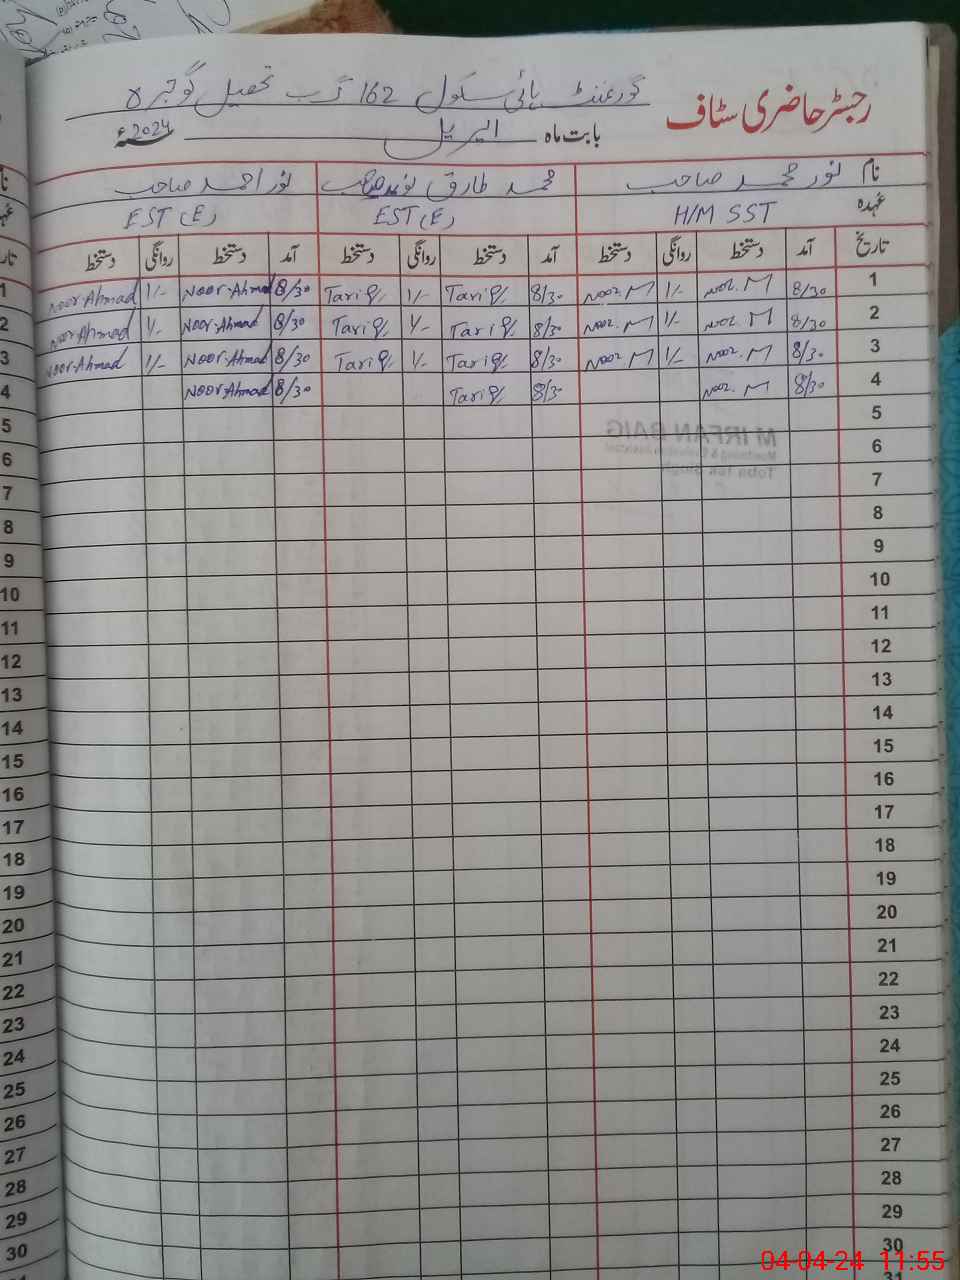 رجسٹر حاضری سٹاف
گورنمنٹ ہائی سکول 162 گ ب تحصیل گوجرہ
بابت ماہ اپریل 2024ء
نام نور محمد صاحب محمد طارق صاحب نور احمد صاحب
عہدہ H/M SST EST (E) EST (E)
تاریخ آمد دستخط روانگی دستخط آمد دستخط روانگی دستخط آمد دستخط روانگی دستخط
1 8/30 Noor.M 1/- Noor.M 8/30 Tariq 1/- Tariq 8/30 Noor.Ahmad 1/- Noor.Ahmad
2 8/30 Noor.M 1/- Noor.M 8/30 Tariq 1/- Tariq 8/30 Noor.Ahmad 1/- Noor.Ahmad
3 8/30 Noor.M 1/- Noor.M 8/30 Tariq 1/- Tariq 8/30 Noor.Ahmad 1/- Noor.Ahmad
4 8/30 Noor.M 8/30 Tariq 8/30 Noor.Ahmad
5
6
7
8
9
10
11
12
13
14
15
16
17
18
19
20
21
22
23
24
25
26
27
28
29
30
31
M IRFAN BAIG
Monitoring & Evaluation Assistant
Toba Tek Singh
1
2
3
4
5
6
7
8
9
10
11
12
13
14
15
16
17
18
19
20
21
22
23
24
25
26
27
28
29
30
04-04-24 11:55